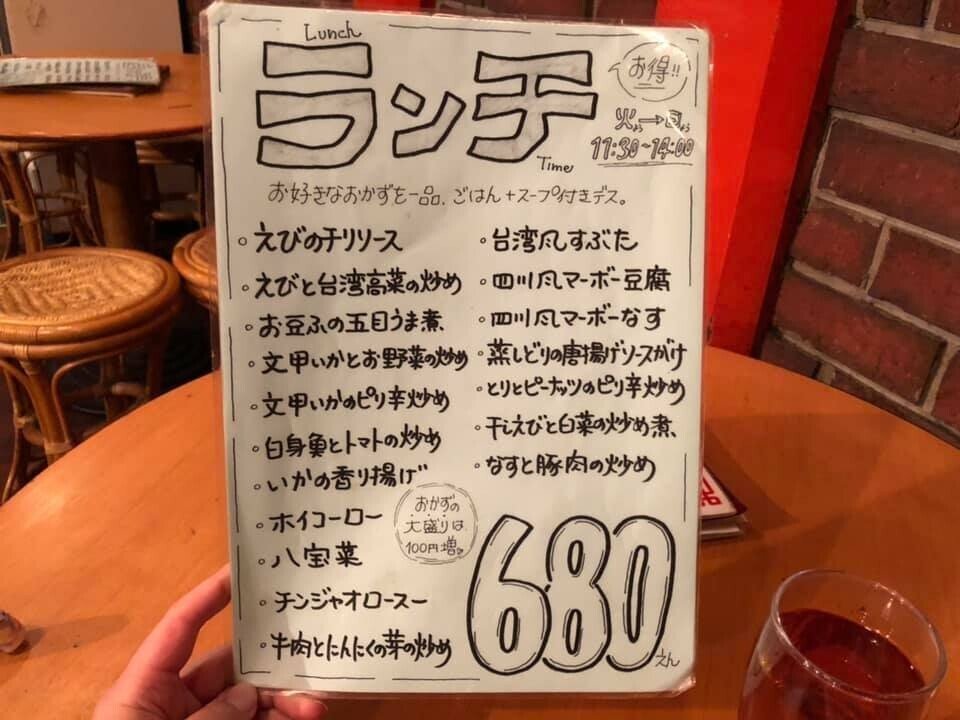 Lunch
ランチ
Time
お得!!
11:30~14:00
お好きなおかずを一品、ごはん+スープ付きデス。
。えびのチリソース
。えびと台湾高菜の炒め
。お豆ふの五目うま煮
。文甲いかとお野菜の炒め
。文甲いかのピリ辛炒め
。白身魚とトマトの炒め
。いかの香り揚げ
。ホイコーロー
。八宝菜
。チンジャオロースー
。牛肉とにんにくの芽の炒め
。台湾風すぶた
。四川風マーボー豆腐
。四川風マーボーなす
。蒸しどりの唐揚げソースがけ
。とりとピーナッツのピリ辛炒め
。干しえびと白菜の炒め煮
。なすと豚肉の炒め
おかずの
大盛りは
100円増。
680えん